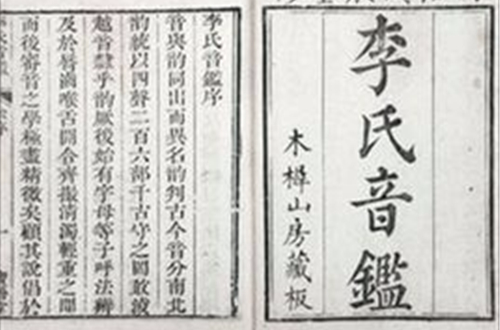 李氏音鑑
木樨山房藏板
李氏音鑑序
音與韵同出而異名韵判古今音分南北
韵統以四聲二百六部千古守之罔敢波
越音隸乎韵厥後始有字母等子呼法辨
及於唇齒喉舌開合齊撮清濁輕重之間
而後審音之學極盡精微矣顧其說倡於